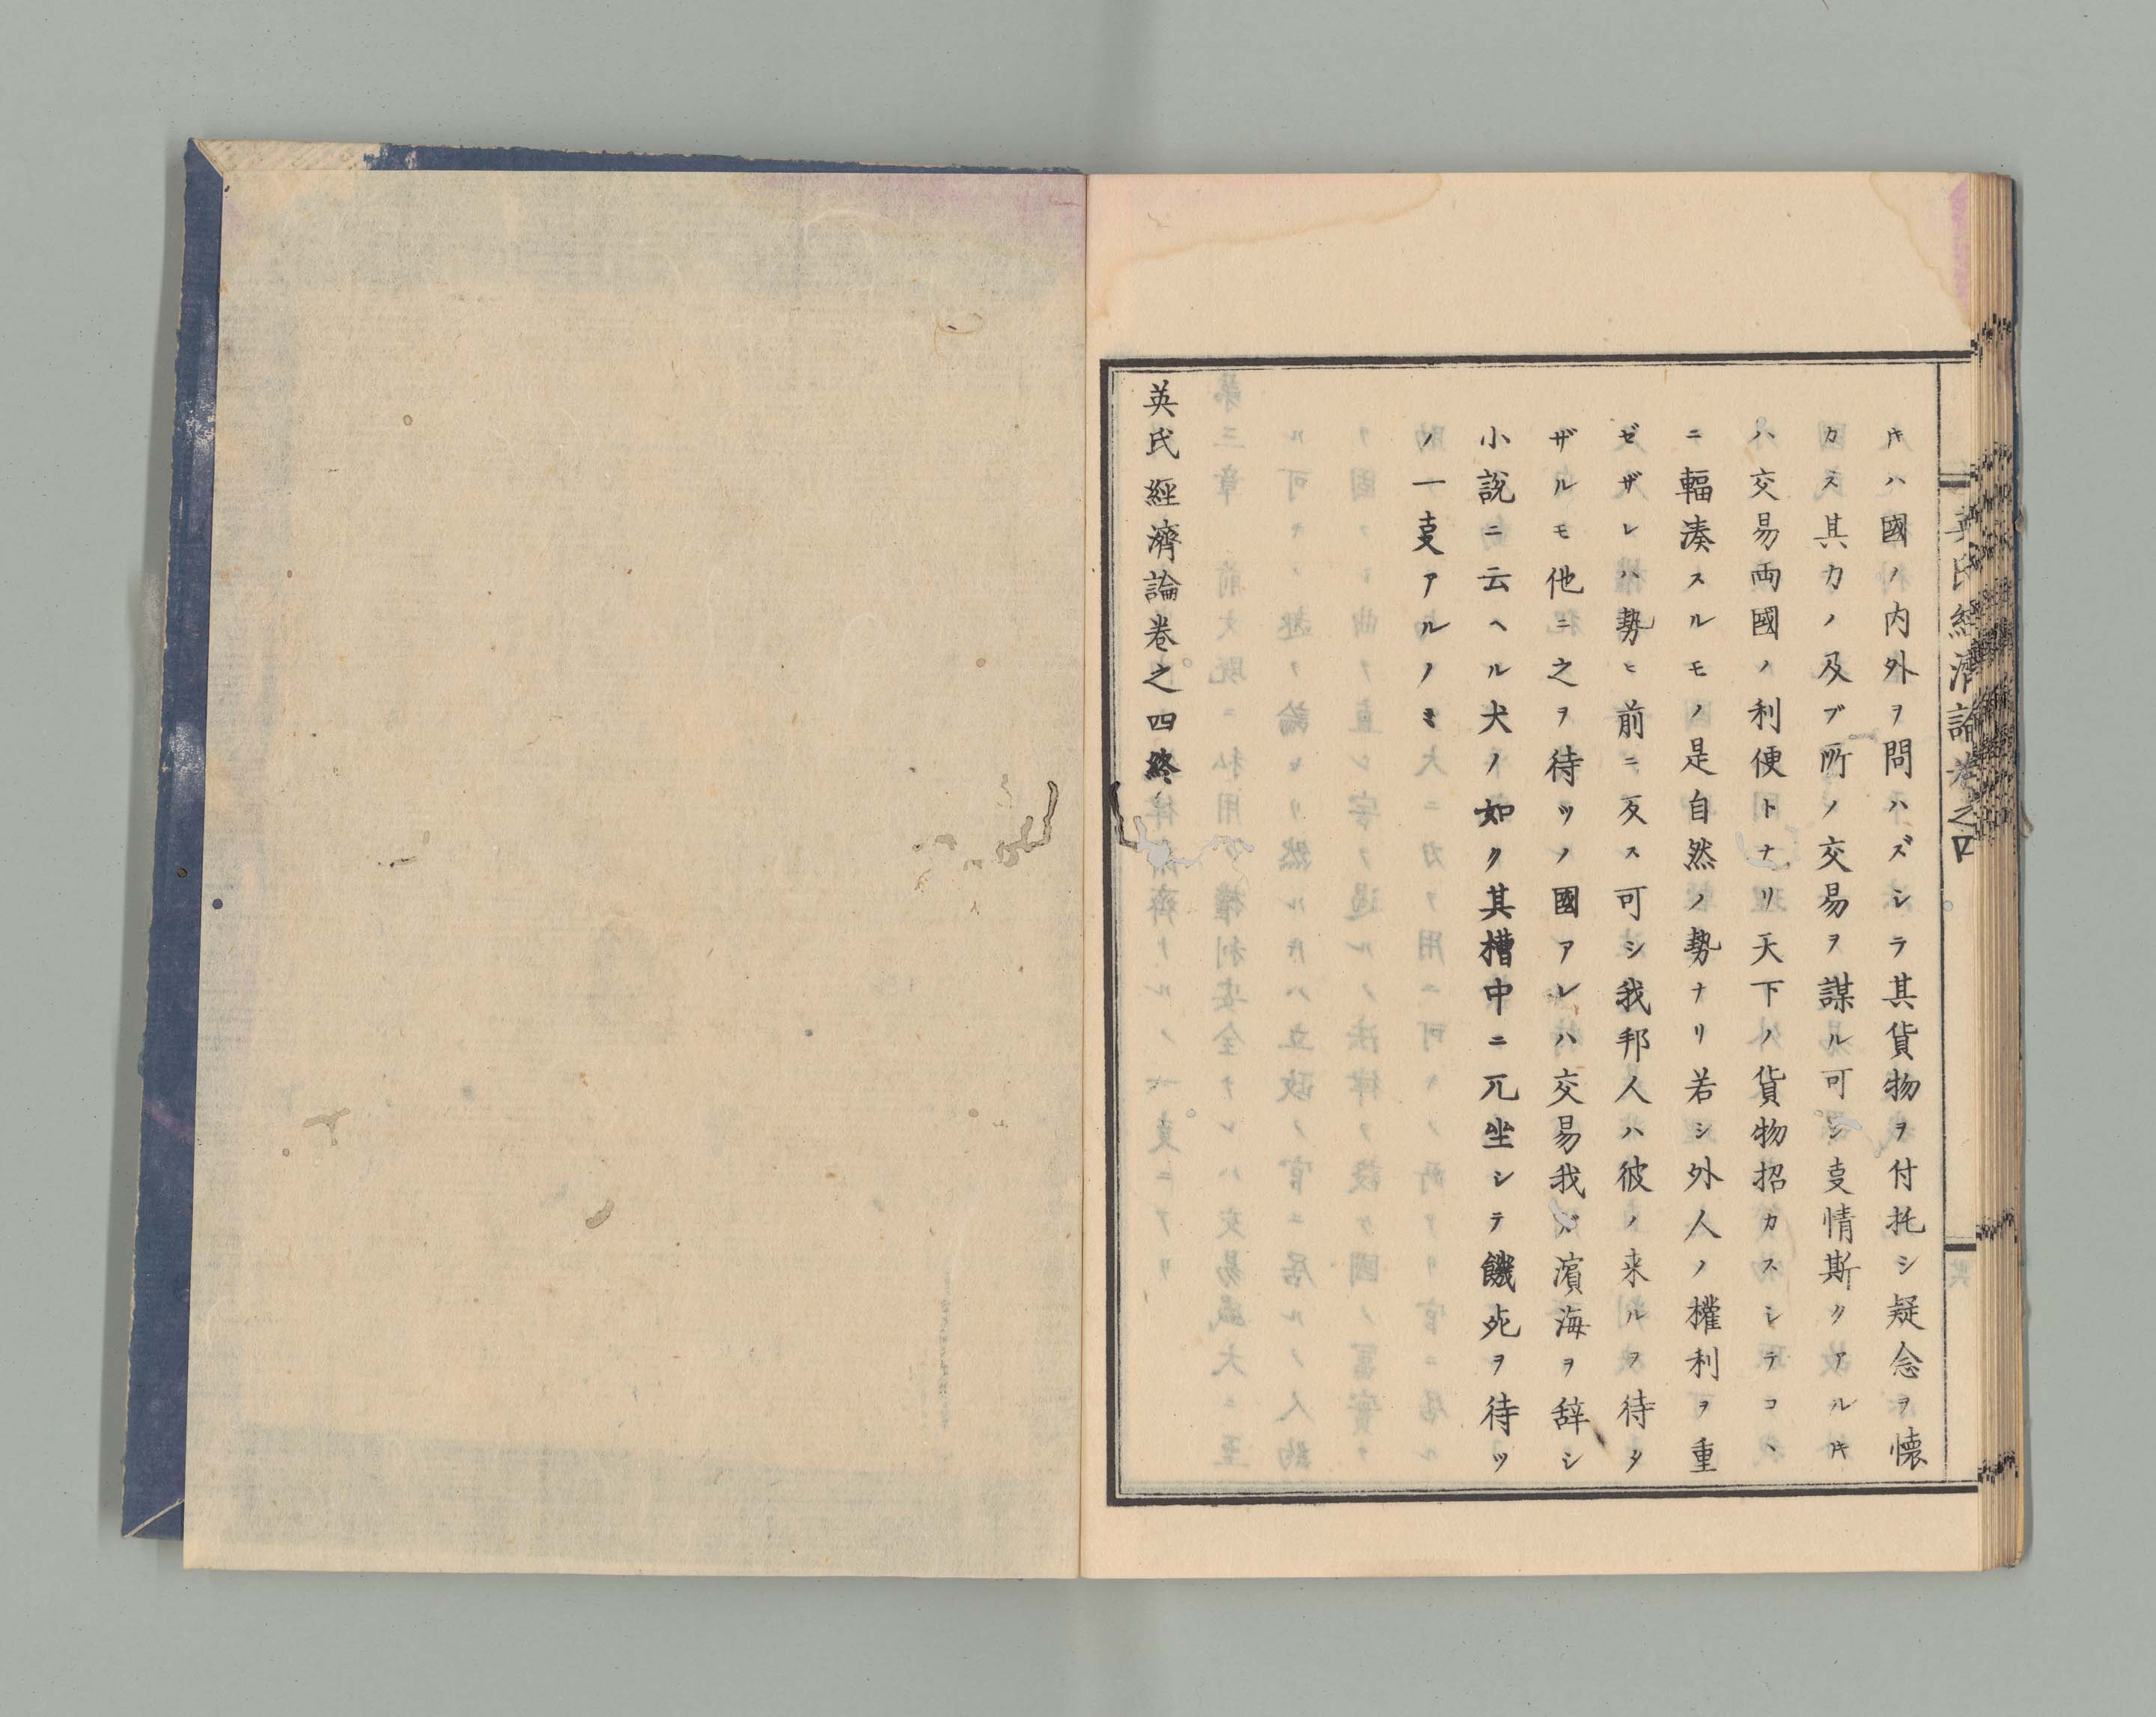 英氏經濟論卷之四
𪜈ハ國ノ内外ヲ問ハズシラ其貨物ヲ付托シ疑念ヲ懐
カス其力ノ及ブ所ノ交易ヲ謀ル可シ㕝情斯クアル𪜈
ハ交易両國ノ利便トナリ天下ノ貨物招カスシテコヽ
ニ輻湊スルモノ是自然ノ勢ナリ若シ外人ノ權利ヲ重
ゼザレハ勢ヒ前ニ反ス可シ我邦人ハ彼ノ来ルヲ待タ
ザルモ他ニ之ヲ待ツノ國アレハ交易我ガ濱海ヲ辞シ
小説ニ云ヘル犬ノ如ク其槽中ニ兀坐シテ饑死ヲ待ツ
ノ一㕝アルノミ
英氏經濟論卷之四終